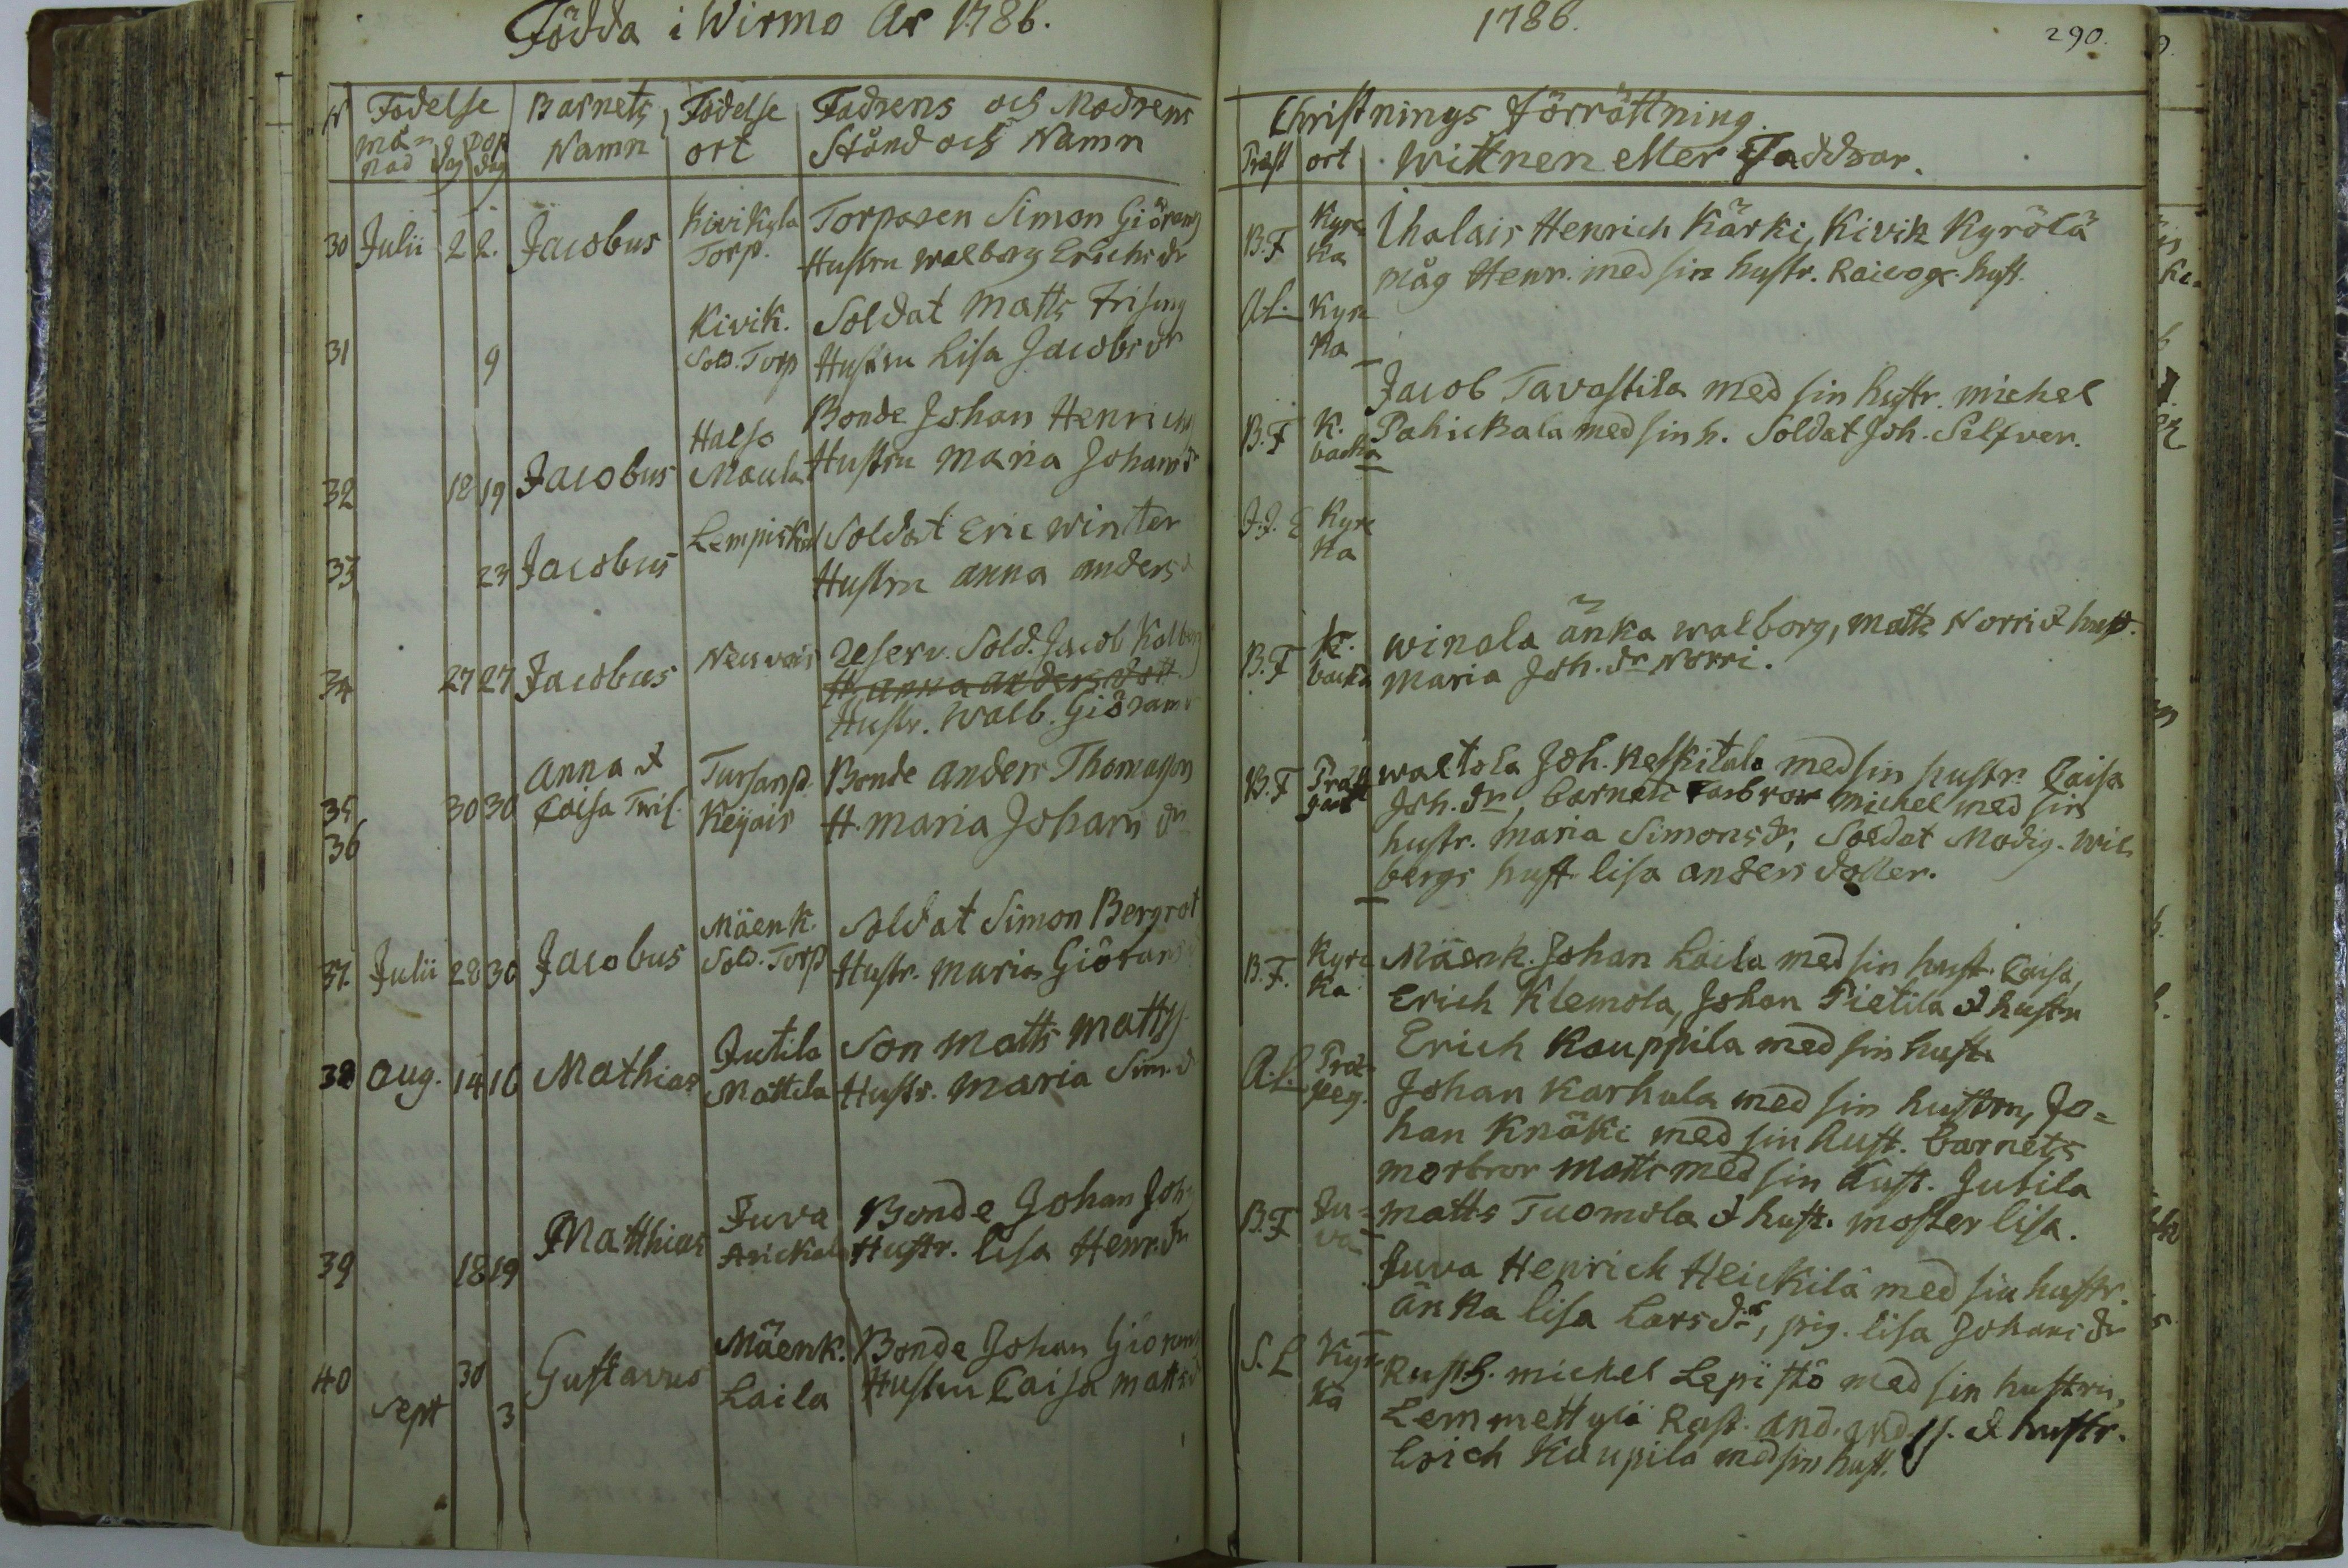 Födda i Wirmo År 1786.
N Födelse Barnets Födelse Fadrens och Modrens
mån dag Döp Namn ort Stånd och Namn
nad dag
30 Julii 2 2. Jacobus Kivikyla Torparen Simon Giörans
Torp. Hustru Walborg Erichsdr
31 9 Kivik. Soldat Matts Frisung
Sold. Torp Hustru Lisa Jacobsdr
32 18 19 Jacobus Halso Bonde Johan Henrichs
Maula Hustru Maria Johansdr
33 23 Jacobus Soldat Eric Winter
Hustru Anna Andersd
34 27 27 Jacobus Neuvois Reserv. Sold. Jacob Kalberg
H. Anna Andersdott
Hustr. Walb. Giörans
35 30 30 Anna & Bonde Anders Thomasson
36 Caisa Tvil. Keijais H. Maria Johans dr
37. Julii 28 30 Jacobus Mäenk. Soldat Simon Bergrot
Sold. Torp Hustr. Maria Giörans
38 Aug. 14 16 Mathias Jutila Son Matts Matts
Mattila Hustr. Maria Sim. d
39 18 19 Matthias Juva Bonde Johan Joh
Hustr. Lisa Henr. dr
40 30 Gustavus Mäenk. Bonde Johan Giörans
Sept 3 Laila Hustru Caisa Mattsd
1786.
290.
Christnings Förrättning.
Präst ort Wittnen eller Faddrar.
B.F Kyrc Ihalais Henrich Kärki, Kivik Kyrölä
ka måg Henr. med sin hustr. hust.
A.L. Kyrc
ka
B.F K. Jacob Tavastila med sin hustr. Michel
backa med sin h. Soldat Joh. Selfver.
J.J. E Kyrc
ka
B.F K. Winola änka Walborg, Matts Norri & hust.
backa Maria Joh. dr Norri.
B.F Präst Waltola Joh. Keskitalo med sin hustr. Caisa
gård Joh. dr, barnets Farbror Michel med sin
hustr. Maria Simonsdr, Soldat Modig. Wil
bergs hust Lisa Anders dotter.
B.F. Kyrc Mäenk. Johan Laila med sin hust. Caisa,
ka Erich Klemola, Johan Pietila & hustr
Erich Kauppila med sin hustr
A.L. Johan Karhula med sin hustru, Jo=
han Knäki med sin hust. barnets
morbror Matts med sin hust. Jutila
B.F Ju= Matts Tuomola & hust. moster Lisa.
va Juva Henrich Heickilä med sin hustr.
änka Lisa Larsdr, pig. Lisa Johans dr
S.L Kyrc Rusth. Michel Lepistö med sin hustru,
ka Lemmettylä Rust. And. And.ss. & hustr.
Erich Kaupila med sin hust.